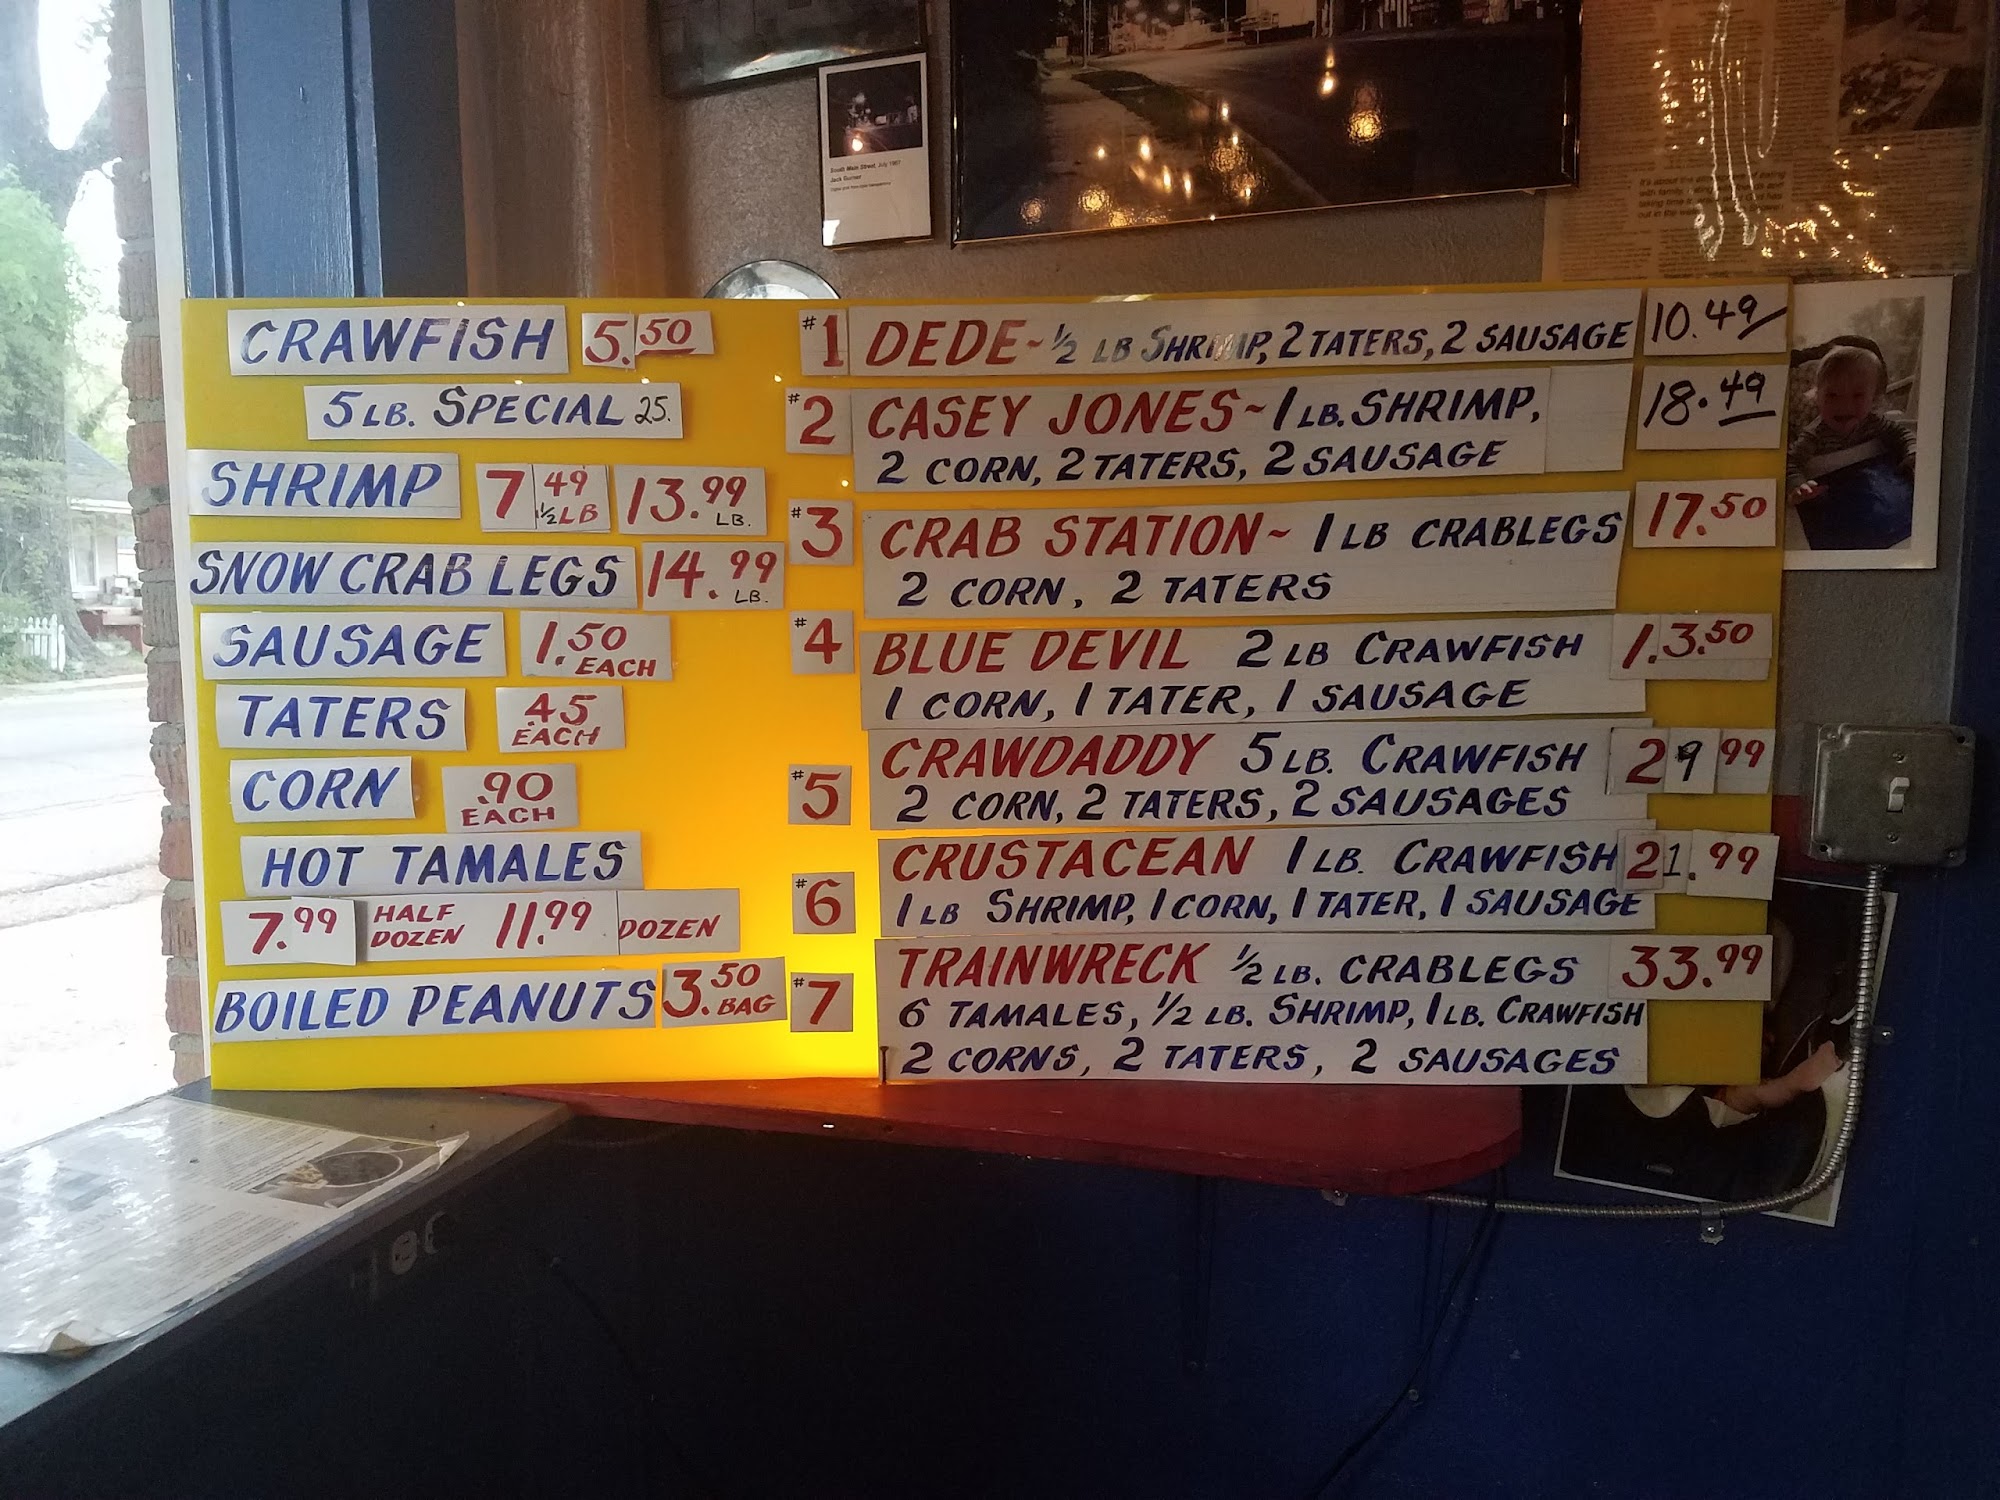 South Main Street, July 1987
It's about the
with family,
taking time
out in the
CRAWFISH 5.50
5 LB. SPECIAL 25.
SHRIMP 7.49 ½ LB 13.99 LB.
SNOW CRAB LEGS 14.99 LB.
SAUSAGE 1.50 EACH
TATERS .45 EACH
CORN .90 EACH
HOT TAMALES
7.99 HALF DOZEN 11.99 DOZEN
BOILED PEANUTS 3.50 BAG
#1 DEDE~ ½ LB SHRIMP, 2 TATERS, 2 SAUSAGE 10.49
#2 CASEY JONES~ 1 LB. SHRIMP, 18.49
2 CORN, 2 TATERS, 2 SAUSAGE
#3 CRAB STATION~ 1 LB CRABLEGS 17.50
2 CORN, 2 TATERS
#4 BLUE DEVIL 2 LB CRAWFISH 1.3.50
1 CORN, 1 TATER, 1 SAUSAGE
#5 CRAWDADDY 5 LB. CRAWFISH 29 99
2 CORN, 2 TATERS, 2 SAUSAGES
#6 CRUSTACEAN 1 LB. CRAWFISH 21.99
1 LB SHRIMP, 1 CORN, 1 TATER, 1 SAUSAGE
#7 TRAINWRECK ½ LB. CRABLEGS 33.99
6 TAMALES, ½ LB. SHRIMP, 1 LB. CRAWFISH
2 CORNS, 2 TATERS, 2 SAUSAGES